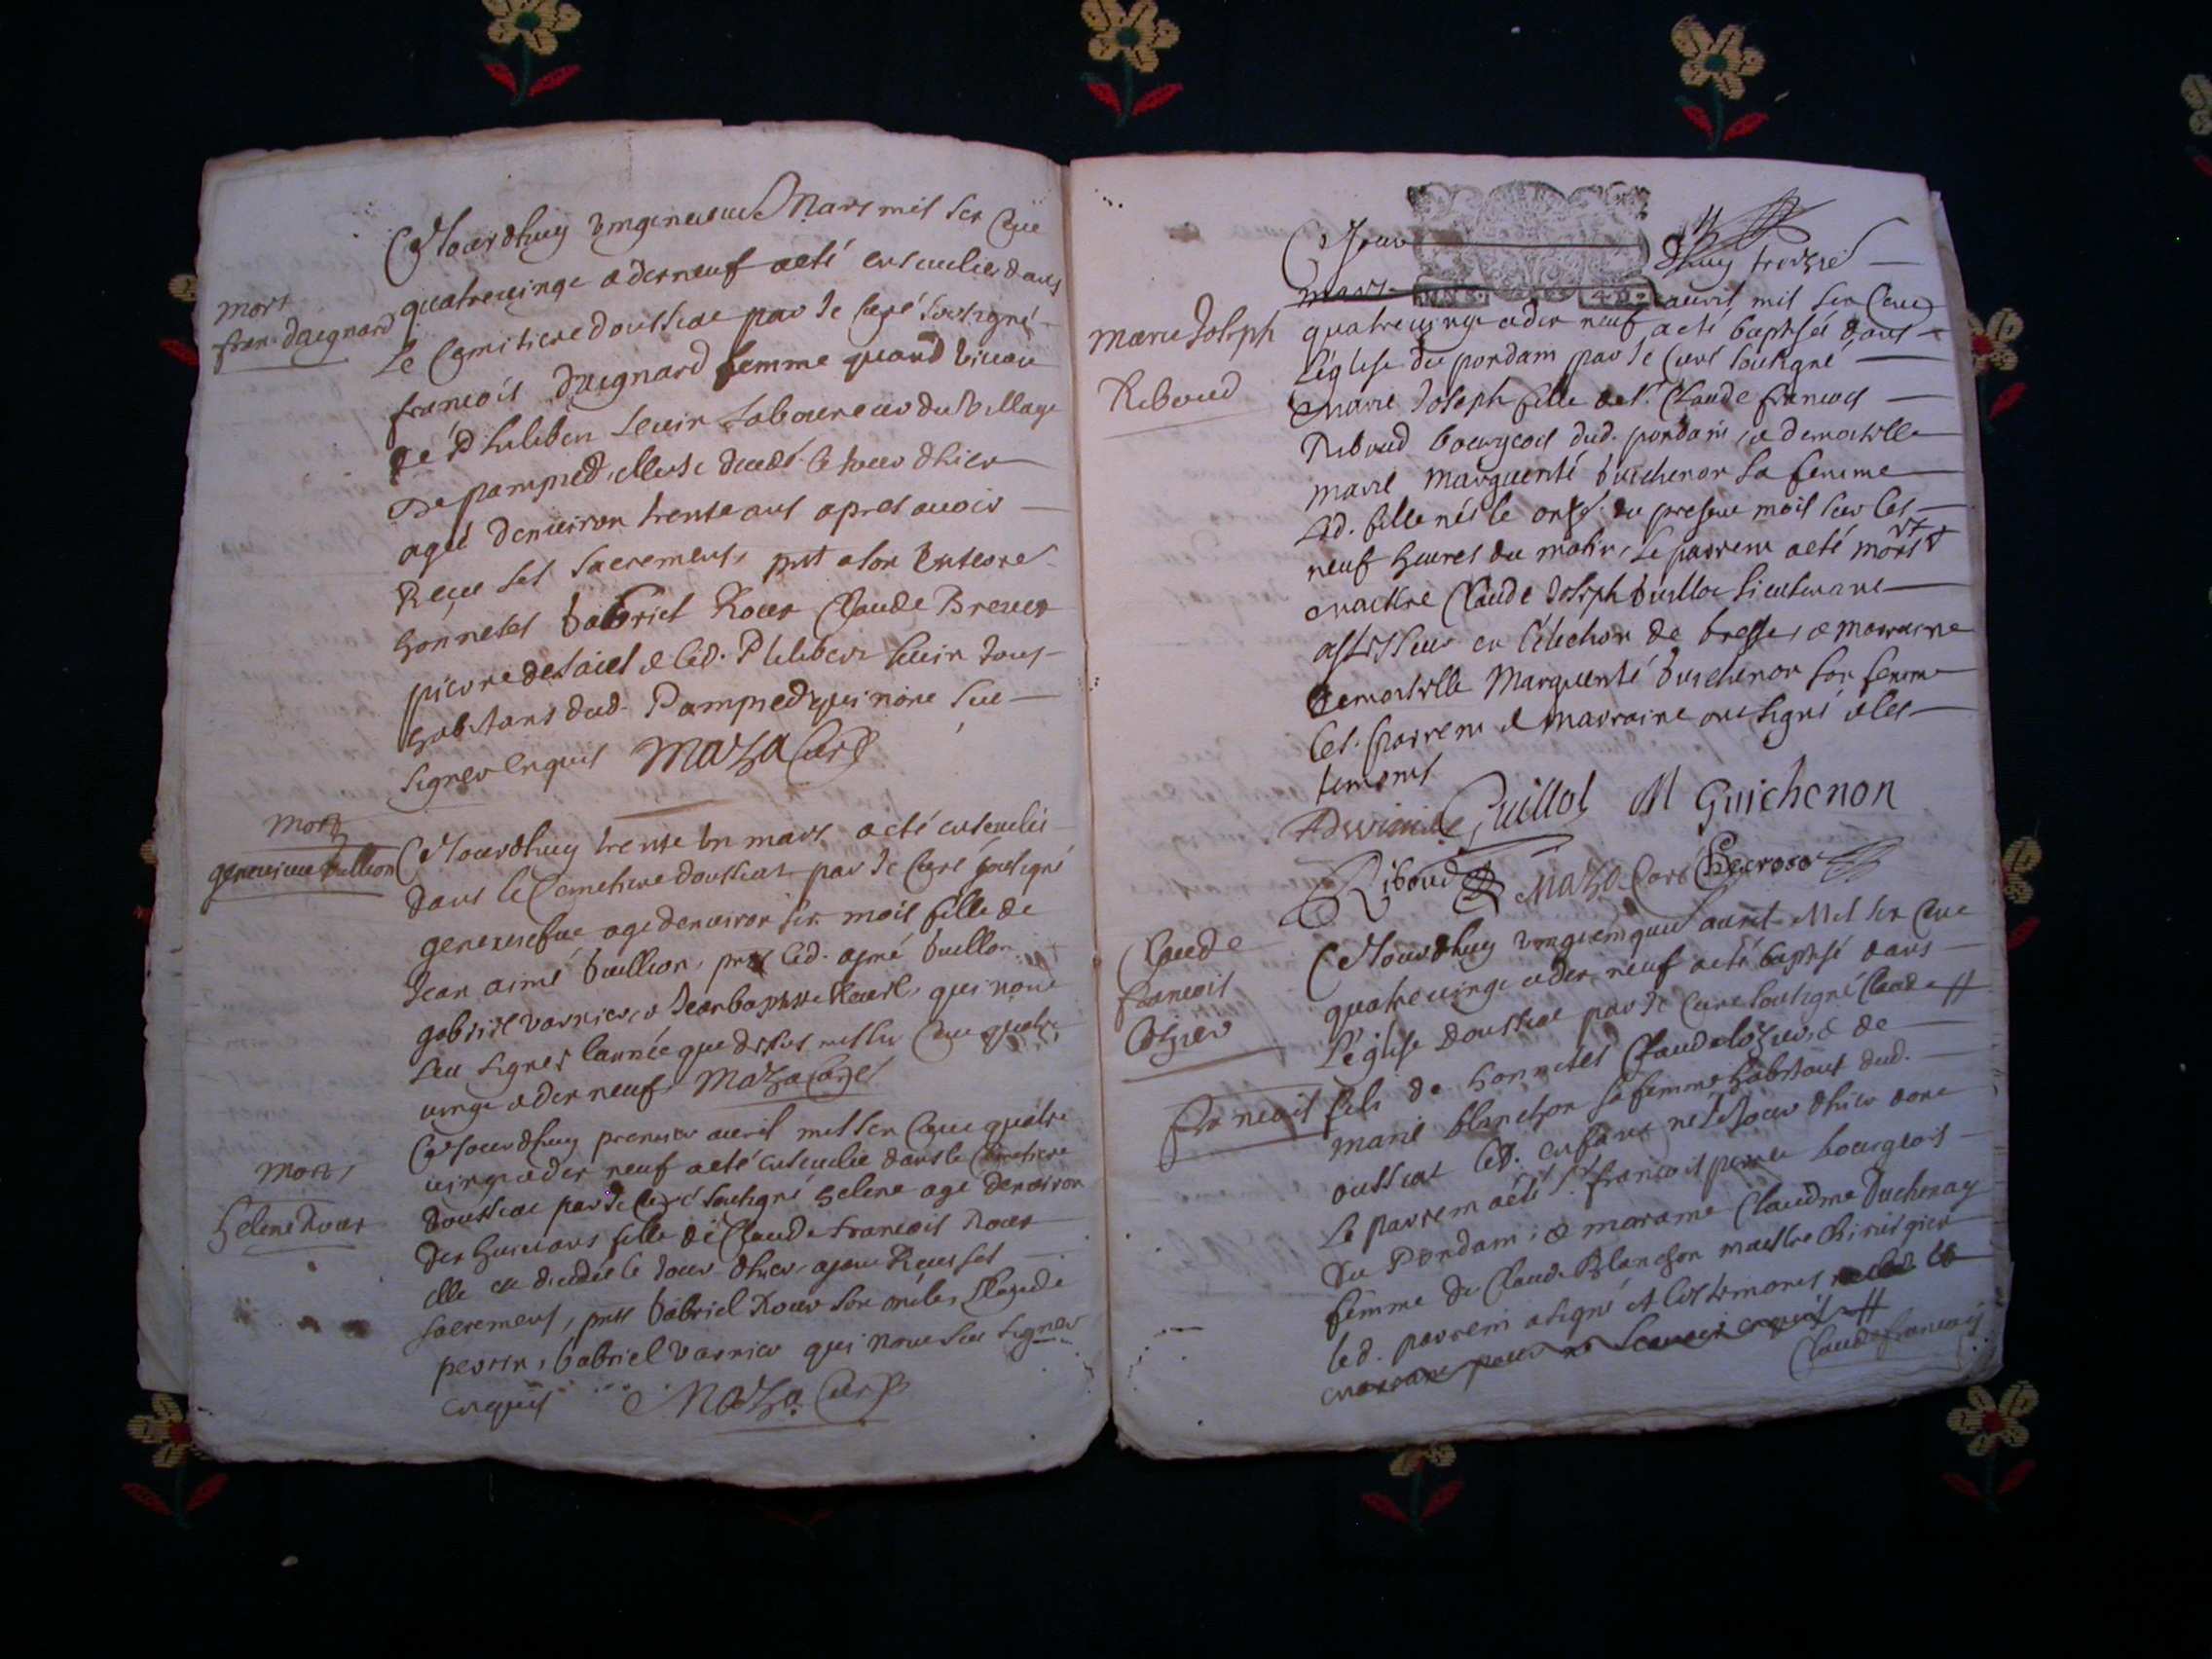 mort
fran. Daignard
Ce Jourdhuy vingtneufme Mars mil six Cent
quatrevingt et dix neuf a eté ensevelie dans
le Cemitiere doussiat par Je Curé soubsigné
francois Daignard femme quand vivoit
de Philibert Levir Laboureur du Village
de pampied, elle est decedé le jour dhier
agé denviron trente ans apres avoir
Reçu ses sacrements, pnt a son Enterre
honnetes Gabriel Roux Claude
pierre et led. Philibert Levir tous
habitans dud. Pampied qui nont sceu
signer enquis Maza Curé
mort
genevieve Guillion
Ce Jourdhuy trente un mars a eté ensevelie
dans le Cemetiere doussiat par Je Curé soubsigné
geneviefve agé denviron six mois fille de
Jean aimé Guillion, pnt led. aymé Guillion
gabriel varnier, et Jean baptiste qui nont
seu signer lannée que dessus mil six Cent quatre
vingt et dix neuf Maza Curé
mort
helene Roux
Ce Jourdhuy premier avril mil six Cent quatre
vingt et dix neuf a eté ensevelie dans le Cimetiere
doussiat par Je Curé soubsigné helene agé denviron
dix huit ans fille de Claude francois Roux
elle est decedée le Jour dhier, ayant Receu ses
sacrements, pnts Gabriel Roux son oncle, Claude
perrin, Gabriel varnier qui nont sceu signer
enquis Maza Curé
Marie Joseph
Riboud
Ce Jour dhuy treizie
mars avril mil six Cent
quatrevingt et dix neuf a eté baptisée dans
Léglise du pondain par Je Curé soubsigné
Marie Joseph fille de sr. Claude francois
Riboud bourgeois dud. pondain, et demoiselle
marie Marguerite Guichenon sa femme
Lad. fille née le onze. du present mois sur les
neuf heures du matin, Le parrein a eté
maistre Claude Joseph Guillot Lieutenant
assesseur en Lélection de bresse, et marraine
demoiselle Marguerite Guichenon son femme
les. parrein et marraine ont signé et les
temoins
Guillot M Guichenon
Riboud Maza Curé
Claude
francois
Lozier
Ce Jourdhuy vingtcinquie avril Mil six Cent
quatrevingt et dix neuf a eté baptisé dans
Léglise doussiat par Je Curé soubsigné Claude #
francois fils de honnetes Claude Lozier, et de
marie blanchon sa femme habitant dud.
oussiat led. enfant né le Jour dhier dont
Le parrein a eté sr. francois perret bourgeois
du Pondain; et maraine Claudine Duchenay
femme de Claude Blanchon maistre Chirurgien
led. parrein a signé et les temoins
marraine pour ne scavoir enquis #
Claude francois